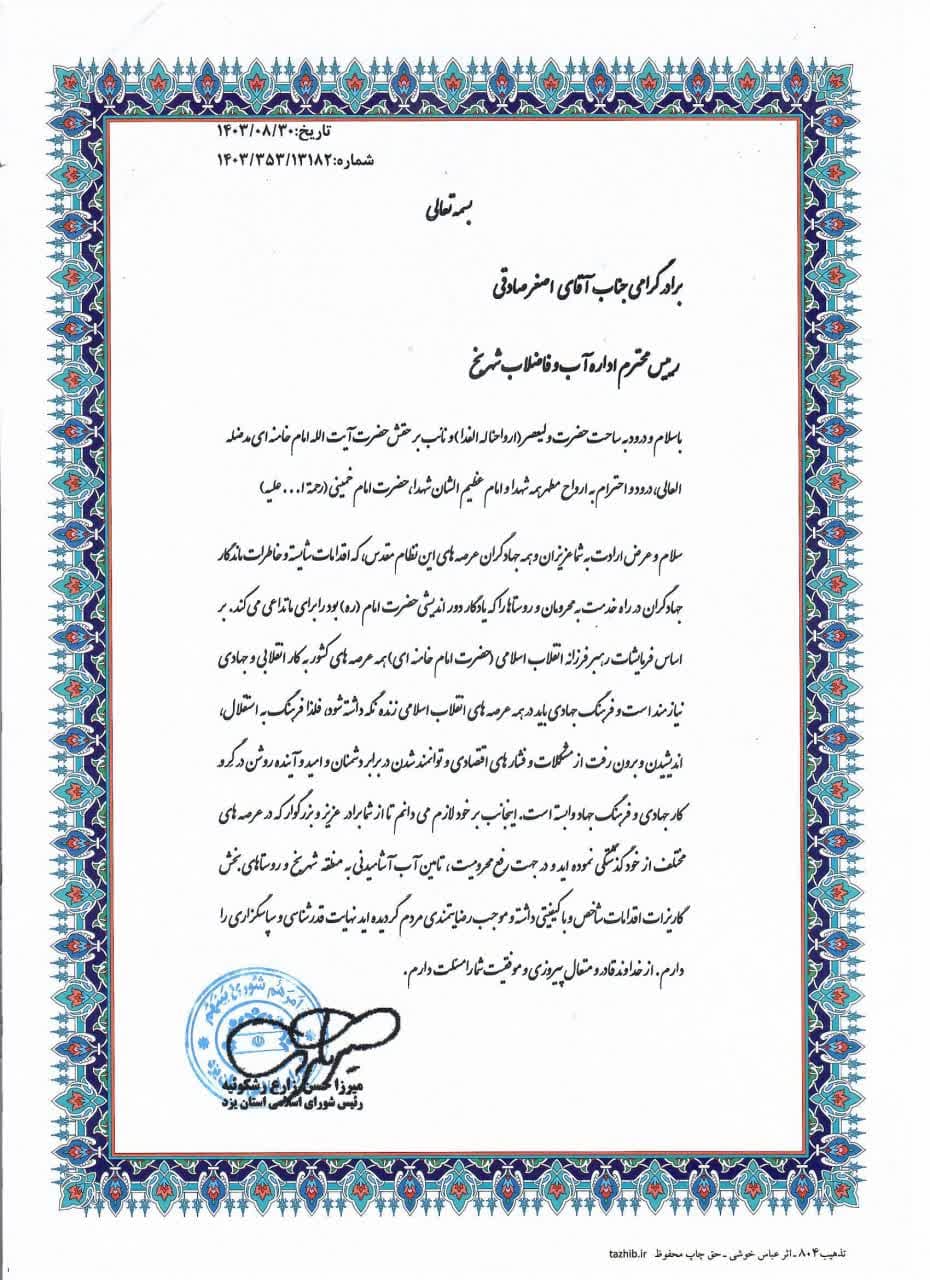 تاریخ:۱۴۰۳/۰۸/۳۰
شماره:۱۴۰۳/۳۵۳/۱۳۱۸۲
بسمه تعالی
برادر گرامی جناب آقای اصغر صادقی
رییس محترم اداره آب و فاضلاب شهر نخ
باسلام و درود به ساحت حضرت ولیعصر(ارواحنا له الفدا)و نائب بر حقش حضرت آیت الله امام خامنه ای مدضله
العالی، درود و احترام به ارواح مطهر همه شهدا و امام عظیم الشان شهدا، حضرت امام خمینی (رحمة ا... علیه)
سلام و عرض ارادت به شما عزیزان و همه جهادگران عرصه های این نظام مقدس، که اقدامات شایسته و خاطرات ماندگار
جهادگران در راه خدمت به محرومان و روستاها را که یادگار دور اندیشی حضرت امام (ره) بود را برای ما تداعی می کند. بر
اساس فرمایشات رهبر فرزانه انقلاب اسلامی (حضرت امام خامنه ای)همه عرصه های کشور به کار انقلابی و جهادی
نیازمند است و فرهنگ جهادی باید در همه عرصه های انقلاب اسلامی زنده نگه داشته شود، فلذا فرهنگ به استقلال،
اندیشیدن و برون رفت از مشکلات و فشار های اقتصادی و توانمند شدن در برابر دشمنان و امید و آینده روشن در گرو
کار جهادی و فرهنگ جهاد وابسته است. اینجانب بر خود لازم می دانم تا از شما برادر عزیز و بزرگوار که در عرصه های
مختلف از خود گذشتگی نموده اید و در جهت رفع محرومیت، تامین آب آشامیدنی به منطقه شهر نخ و روستاهای بخش
گاریزات اقدامات شاخص و با کیفیتی داشته و موجب رضایتمندی مردم گردیده اید نهایت قدرشناسی و سپاسگزاری را
دارم. از خداوند قادر و متعال پیروزی و موفقیت شما را مسئلت دارم.
اَمرُهُم شُوریٰ بَینَهُم
میرزا حسن زارع رشکوئیه
رئیس شورای اسلامی استان یزد
تذهیب۸۰۴ـاثر عباس خوشی ـ حق چاپ محفوظ tazhib.ir